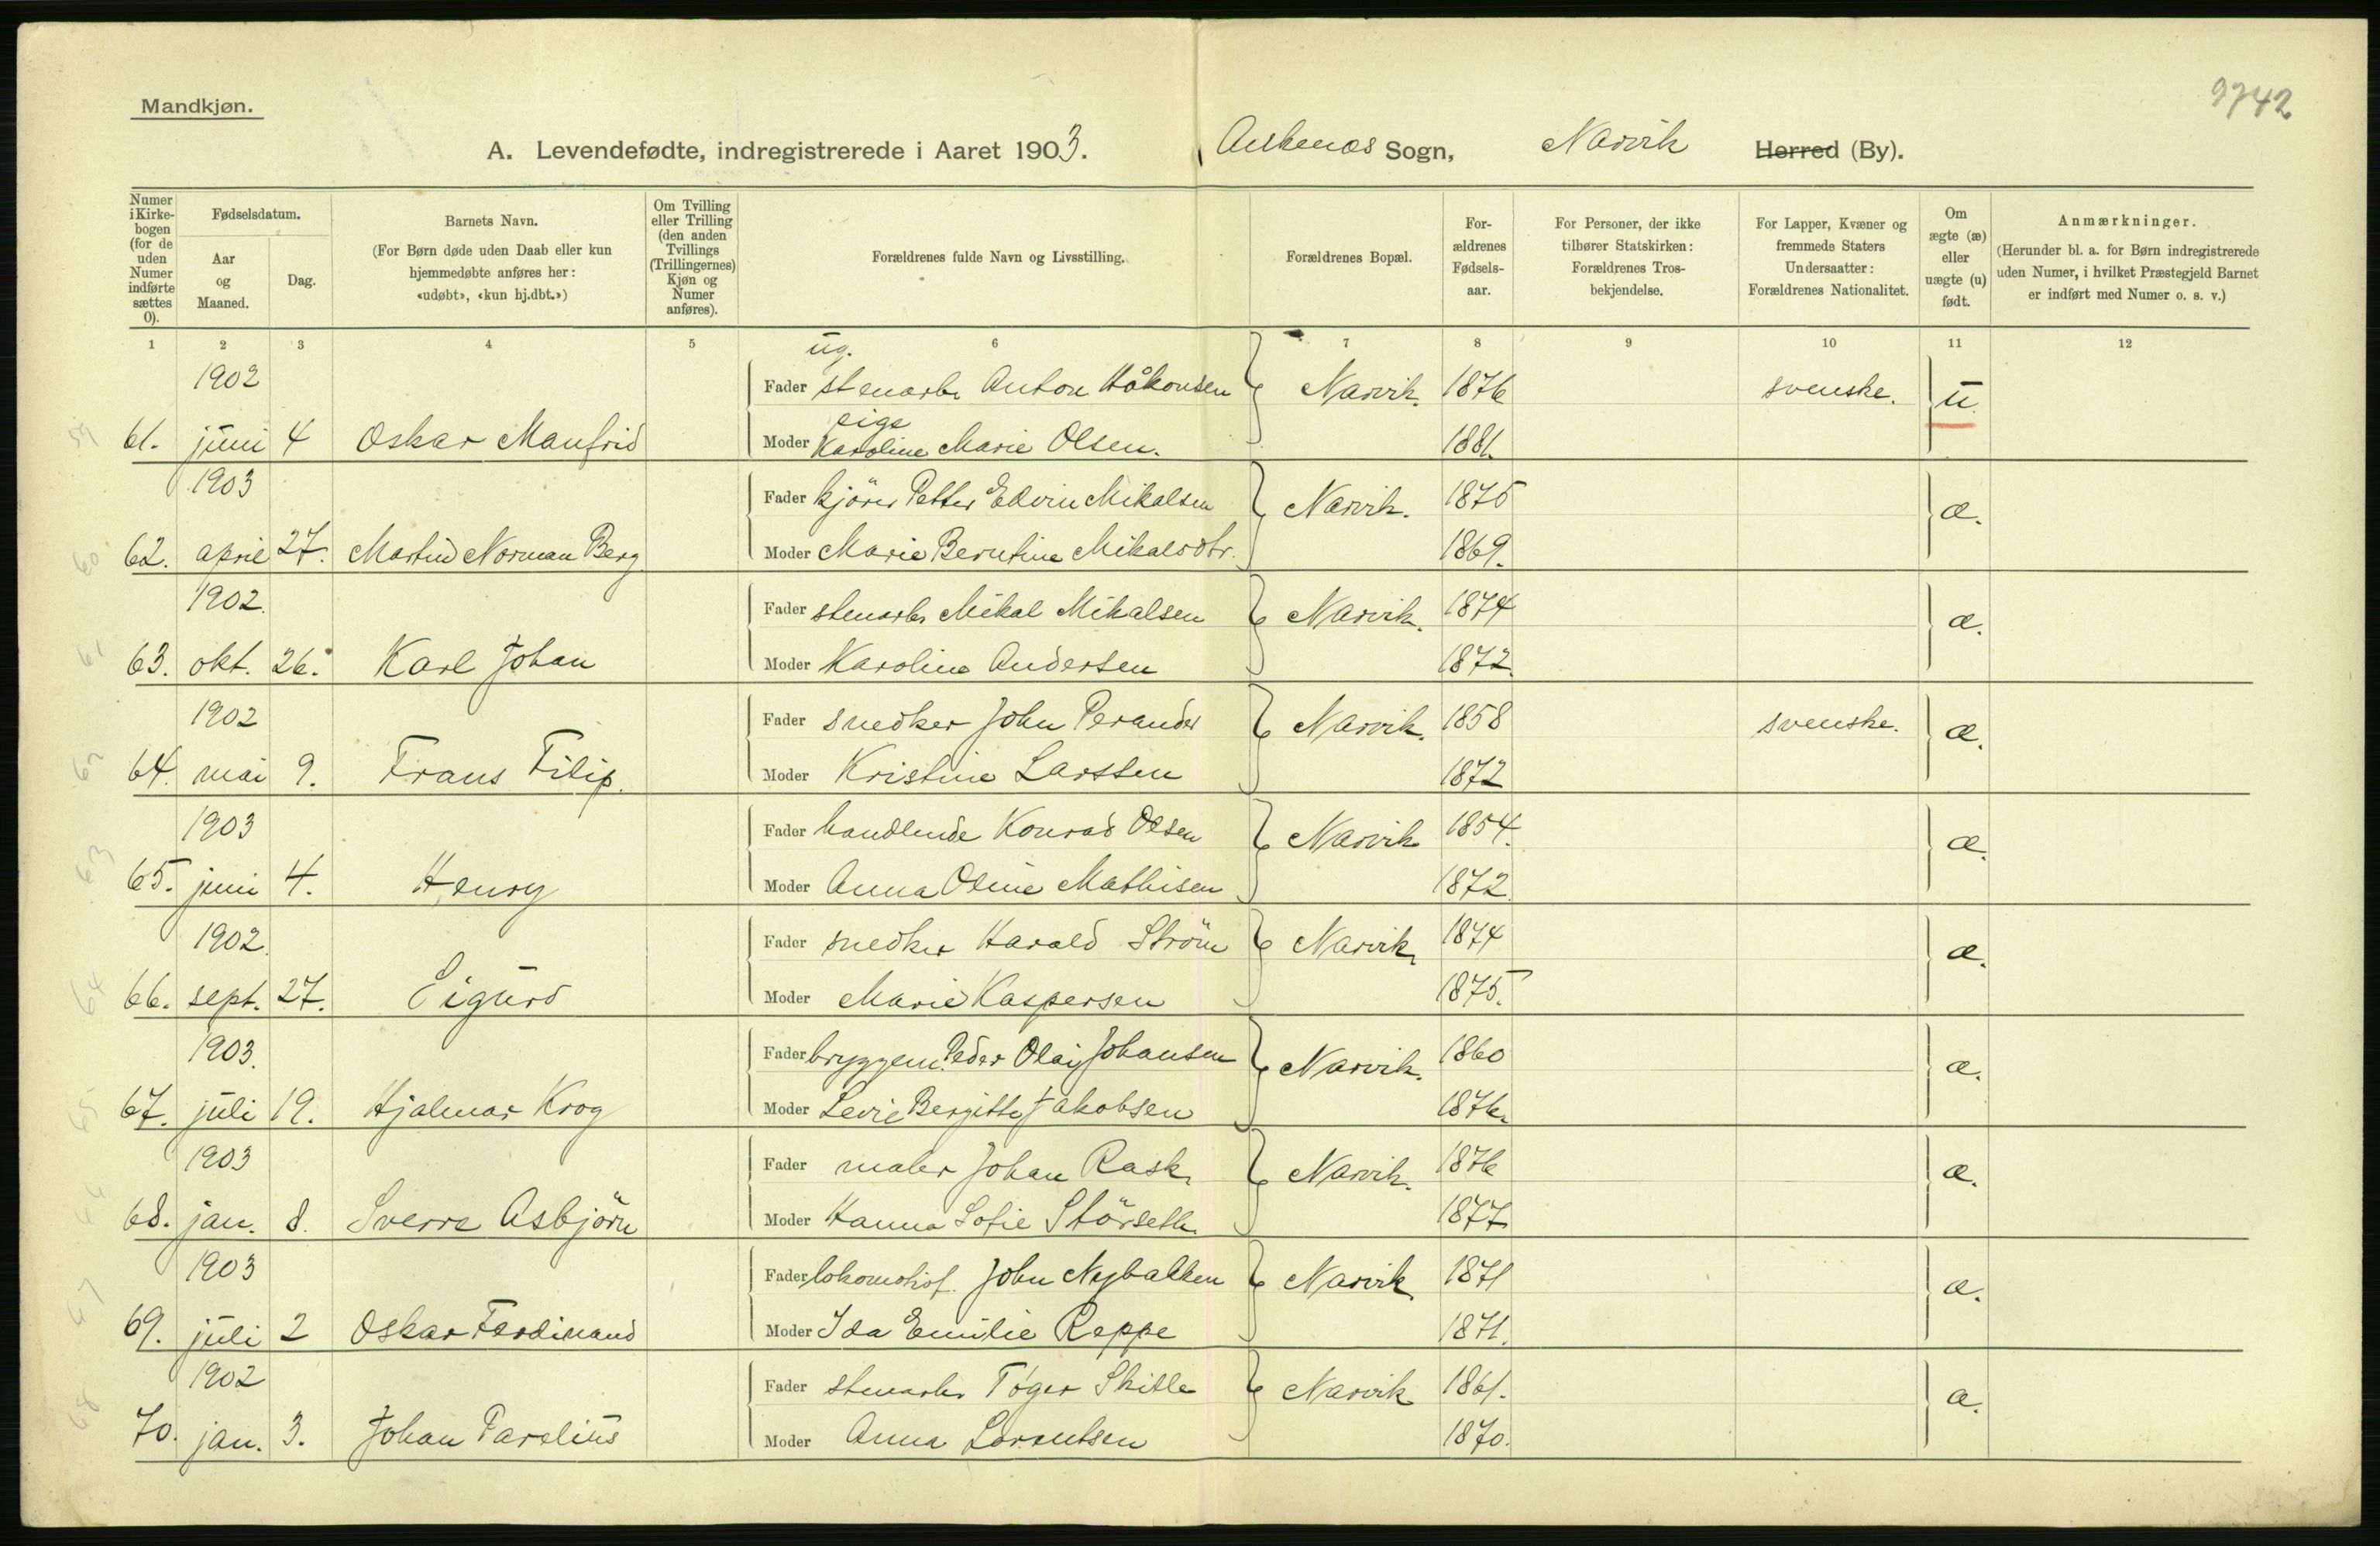 9742
Mandkjøn.
A. Levendefødte, indregistrerede i Aaret 1903. Ankenæs Sogn, Narvik Herred (By).
Numer i Kirkebogen (for de uden Numer indførte sættes 0).
Fødselsdatum.
Aar og Maaned.
Dag.
Barnets Navn.
(For Børn døde uden Daab eller kun hjemmedøbte anføres her: «udøbt», «kun hj.dbt.»)
Om Tvilling eller Trilling (den anden Tvillings (Trillingernes) Kjøn og Numer anføres).
Forældrenes fulde Navn og Livsstilling.
Forældrenes Bopæl.
For-ældrenes Fødsels-aar.
For Personer, der ikke tilhører Statskirken: Forældrenes Tros-bekjendelse.
For Lapper, Kvæner og fremmede Staters Undersaatter: Forældrenes Nationalitet.
Om ægte (æ) eller uægte (u) født.
Anmærkninger.
(Herunder bl. a. for Børn indregistrerede uden Numer, i hvilket Præstegjeld Barnet er indført med Numer o. s. v.)
1 2 3 4 5 6 7 8 9 10 11 12
ug.
1902 Fader stenarb. Anton Håkonsen Narvik. 1876 svenske. u.
pige
59 61. juni 4 Oskar Manfrid Moder Karoline Marie Olsen. 1881.
1903 Fader kjörer Petter Edvin Mikalsen Narvik. 1875 æ.
60 62. april 27. Martin Norman Berg Moder Marie Berntine Mikalsdtr. 1869.
1902. Fader stenarb. Mikal Mikalsen Narvik. 1874 æ.
61 63. okt. 26. Karl Johan Moder Karoline Andersen 1872.
1902 Fader snedker John Perander Narvik. 1858 svenske. æ.
62 64. mai 9. Frans Filip. Moder Kristine Larssen 1872
1903 Fader handlende Konrad Olsen Narvik 1854. æ.
63 65. juni 4. Henry Moder Anna Oline Mathisen 1872.
1902. Fader snedker Harald Ström Narvik 1874 æ.
64 66. sept. 27. Sigurd Moder Marie Kaspersen 1875.
1903. Fader bryggem. Peder Olai Johansen Narvik. 1860 æ.
65 67. juli 19. Hjalmar Krog Moder Bergitte Jakobsen 1876.
1903 Fader maler Johan Rask Narvik. 1876 æ.
66 68. jan. 8. Sverre Asbjörn Moder Hanna Sofie Störseth 1877
1903 Fader lokomotivf. John Nybakken Narvik 1871 æ.
67 69. juli 2 Oskar Ferdinand Moder Ida Emilie Reppe 1871.
1902 Fader stenarb. Töger Skille Narvik 1861. æ.
68 70. jan. 3. Johan Parelius Moder Anna Lorentsen 1870.